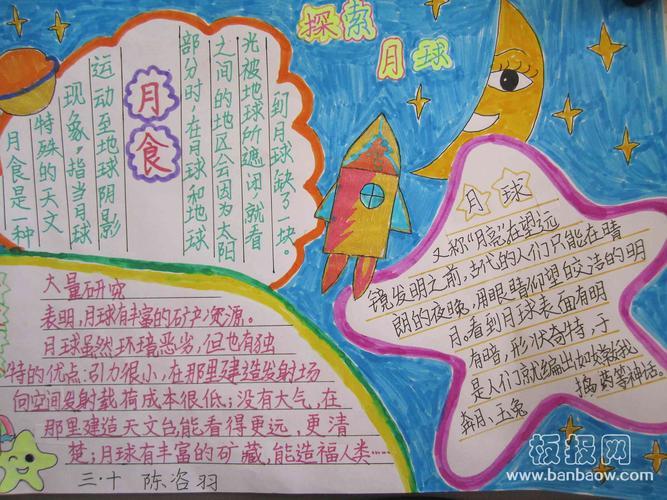 探索
月球
月食
月食是一种
特殊的天文
现象,指当月球
运动至地球阴影
部分时,在月球和地球
之间的地区会因为太阳
光被地球所遮闭,就看
到月球缺了一块。
月球
又称“月亮”在望远
镜发明之前,古代的人们只能在晴
朗的夜晚,用眼睛仰望皎洁的明
月。看到月球表面有明
有暗,形状奇特,于
是人们就编出
奔月、玉兔捣药等神话。
大量研究
表明,月球有丰富的矿产资源。
月球虽然环境恶劣,但也有独
特的优点:引力很小,在那里建造发射场
向空间发射载有成本很低;没有大气,在
那里建造天文台能看得更远,更清
楚;月球有丰富的矿藏,能造福人类……
三·十 陈咨羽
板报网
www.banbaow.com